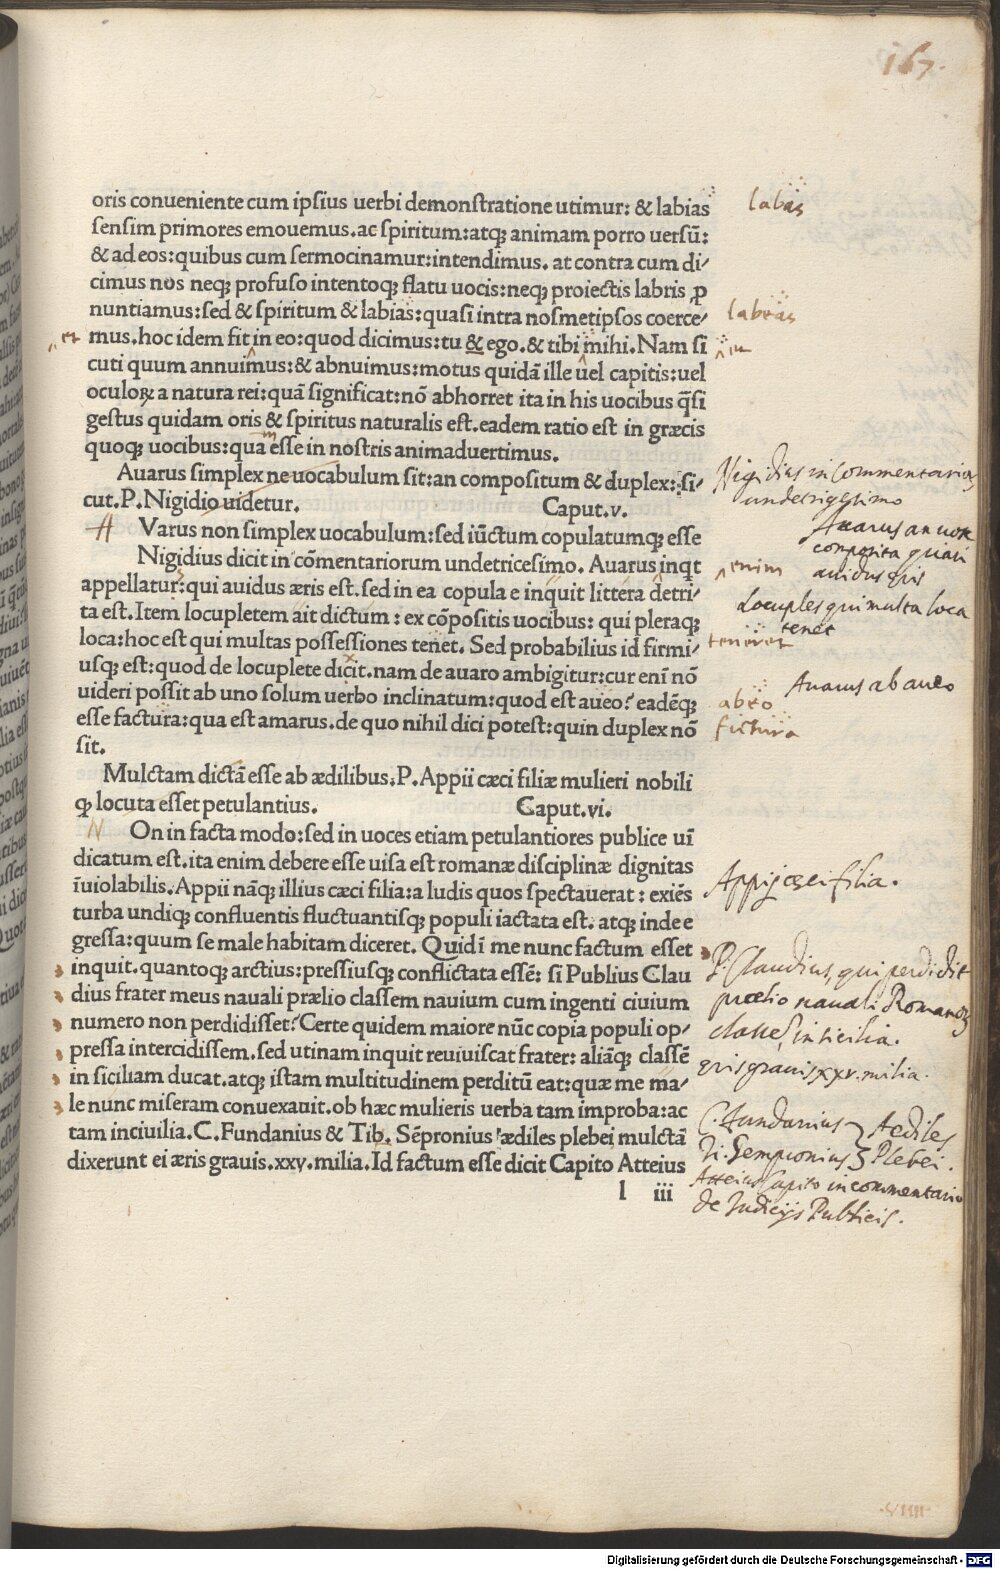 167.
oris conueniente cum ipsius uerbi demonstratione utimur: & labias
labias
sensim primores emouemus. ac spiritum: atqꝫ animam porro uersū:
& ad eos: quibus cum sermocinamur: intendimus. at contra cum di/
cimus nos neqꝫ profuso intentoqꝫ flatu uocis: neqꝫ proiectis labris ꝓ
nuntiamus: sed & spiritum & labias: quasi intra nosmetipsos coerce/
labeas
mus. hoc idem fit in eo: quod dicimus: tu & ego. & tibi mihi. Nam si
et
cuti quum annuimus: & abnuimus: motus quidā ille uel capitis: uel
oculoꝝ a natura rei: quā significat: nō abhorret ita in his uocibus q̄si
gestus quidam oris & spiritus naturalis est. eadem ratio est in græcis
quoqꝫ uocibus: qua esse in nostris animaduertimus.
Auarus simplex ne uocabulum sit: an compositum & duplex: si/
cut. P. Nigidio uidetur. Caput. v.
Nigidius in Commentarior
undetrigesimo
Varus non simplex uocabulum: sed iūctum copulatumqꝫ esse
Nigidius dicit in cōmentariorum undetricesimo. Auarus inqt
Auarus an uox
composita quasi
auidus æris
enim
appellatur: qui auidus æris est. sed in ea copula e inquit littera detri/
ta est. Item locupletem ait dictum: ex cōpositis uocibus: qui pleraqꝫ
Locuples qui multa loca
tenet
loca: hoc est qui multas possessiones tenet. Sed probabilius id firmi/
teneret
usqꝫ est: quod de locuplete dicit. nam de auaro ambigitur: cur enī nō
Auarus ab aueo
uideri possit ab uno solum uerbo inclinatum: quod est aueo? eadēqꝫ
abeo
esse factura: qua est amarus. de quo nihil dici potest: quin duplex nō
fictura
sit.
Mulctam dictā esse ab ædilibus. P. Appii cæci filiæ mulieri nobili
qꝫ locuta esset petulantius. Caput. vi.
N On in facta modo: sed in uoces etiam petulantiores publice uī
dicatum est. ita enim debere esse uisa est romanæ disciplinæ dignitas
īuiolabilis. Appii nāqꝫ illius cæci filia: a ludis quos spectauerat: exiēs
Appij cæci filia.
turba undiqꝫ confluentis fluctuantisqꝫ populi iactata est. atqꝫ inde e
gressa: quum se male habitam diceret. Quid ī me nunc factum esset
inquit. quantoqꝫ arctius: pressiusqꝫ conflictata essē: si Publius Clau
P. Claudius, qui perdidit
prælio nauali Romanor
classes, in Sicilia.
dius frater meus nauali prælio classem nauium cum ingenti ciuium
numero non perdidisset? Certe quidem maiore nūc copia populi op/
pressa intercidissem. sed utinam inquit reuiuiscat frater: aliāqꝫ classē
æris grauis xxv. milia.
in siciliam ducat. atqꝫ istam multitudinem perditū eat: quæ me ma/
le nunc miseram conuexauit. ob hæc mulieris uerba tam improba: ac
tam inciuilia. C. Fundanius & Tib. Sēpronius ædiles plebei mulctā
C. Fundanius Aediles
Ti. Sempronius Plebei.
dixerunt ei æris grauis. xxv. milia. Id factum esse dicit Capito Atteius
Atteius Capito in commentario
de Judicijs Publicis.
l iii
Digitalisierung gefördert durch die Deutsche Forschungsgemeinschaft - DFG